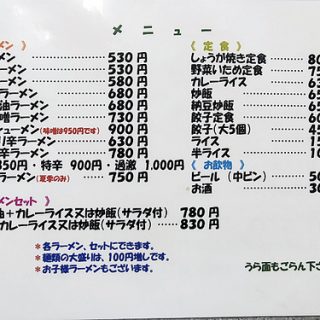 メニュー
メン 》
メン 530円
ーメン 580円
ーメン 580円
ラーメン 680円
油ラーメン 680円
噌ラーメン 730円
シューメン(味噌は950円です) 900円
リ辛ラーメン 630円
辛ラーメン 780円
850円・特辛 900円・過激 1,000円
ーメン(夏季のみ) 750円
メンセット 》
油+カレーライス又は炒飯(サラダ付) 780円
カレーライス又は炒飯(サラダ付) 830円
*各ラーメン、セットにできます。
*麺類の大盛りは、100円増しです。
*お子様ラーメンもございます。
《 定食 》
しょうが焼き定食 80
野菜いため定食 75
カレーライス 63
炒飯 65
納豆炒飯
餃子定食
餃子(大5個) 45
ライス
半ライス
《 お飲物 》
ビール(中ビン) 50
お酒 30
うら面もごらん下さ